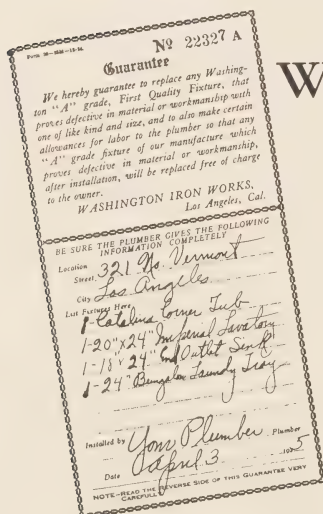 Nº 22327 A
Guarantee
We hereby guarantee to replace any Washing-
ton "A" grade, First Quality Fixture, that
proves defective in material or workmanship with
one of like kind and size, and to also make certain
allowances for labor to the plumber so that any
"A" grade fixture of our manufacture which
proves defective in material or workmanship,
after installation, will be replaced free of charge
to the owner.
WASHINGTON IRON WORKS,
Los Angeles, Cal.
BE SURE THE PLUMBER GIVES THE FOLLOWING
INFORMATION COMPLETELY
Location
Street 321 No. Vermont
City Los Angeles
List Fixtures Here
1-Catalina Corner Tub
1-20"x24" Imperial Lavatory
1-18"x24" End Outlet Sink
1-24" Bungalow Laundry Tray
Installed by Your Plumber Plumber
Date April 3 1925
NOTE-READ THE REVERSE SIDE OF THIS GUARANTEE VERY
CAREFULLY
W